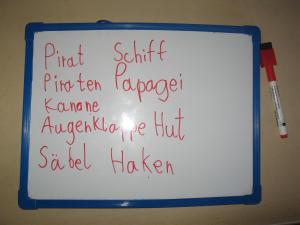 Pirat Schiff
Piraten Papagei
Kanone
Augenklappe Hut
Säbel Haken